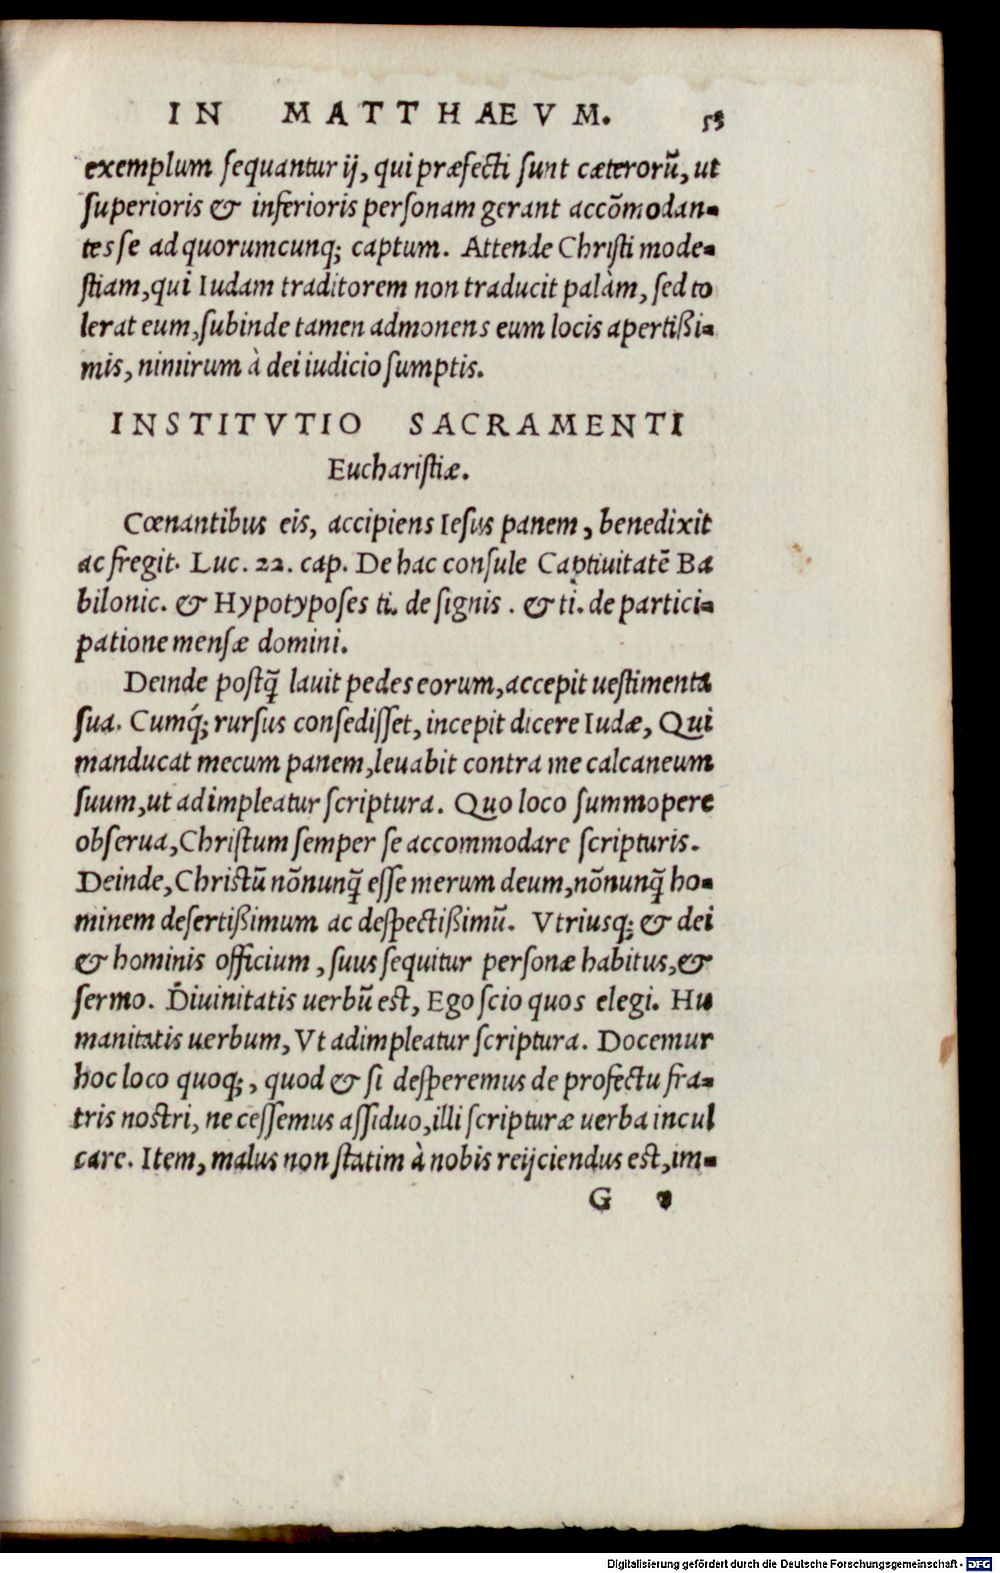 IN MATTHAEVM. 53
exemplum sequantur ij, qui præfecti sunt cæterorũ, ut
superioris & inferioris personam gerant accõmodan-
tes se ad quorumcunq; captum. Attende Christi mode-
stiam, qui Iudam traditorem non traducit palàm, sed to
lerat eum, subinde tamen admonens eum locis apertißi-
mis, nimirum à dei iudicio sumptis.
INSTITVTIO SACRAMENTI
Eucharistiæ.
Cœnantibus eis, accipiens Iesus panem, benedixit
ac fregit. Luc. 22. cap. De hac consule Captiuitatẽ Ba
bilonic. & Hypotyposes ti. de signis. & ti. de partici-
patione mensæ domini.
Deinde postq̃ lauit pedes eorum, accepit uestimenta
sua. Cumq́; rursus consedisset, incepit dicere Iudæ, Qui
manducat mecum panem, leuabit contra me calcaneum
suum, ut adimpleatur scriptura. Quo loco summopere
obserua, Christum semper se accommodare scripturis.
Deinde, Christũ nõnunq̃ esse merum deum, nõnunq̃ ho-
minem desertißimum ac despectißimũ. Vtriusq; & dei
& hominis officium, suus sequitur personæ habitus, &
sermo. Diuinitatis uerbũ est, Ego scio quos elegi. Hu
manitatis uerbum, Vt adimpleatur scriptura. Docemur
hoc loco quoq;, quod & si desperemus de profectu fra-
tris nostri, ne cessemus assiduo, illi scripturæ uerba incul
care. Item, malus non statim à nobis reijciendus est, im-
G
Digitalisierung gefördert durch die Deutsche Forschungsgemeinschaft - DFG